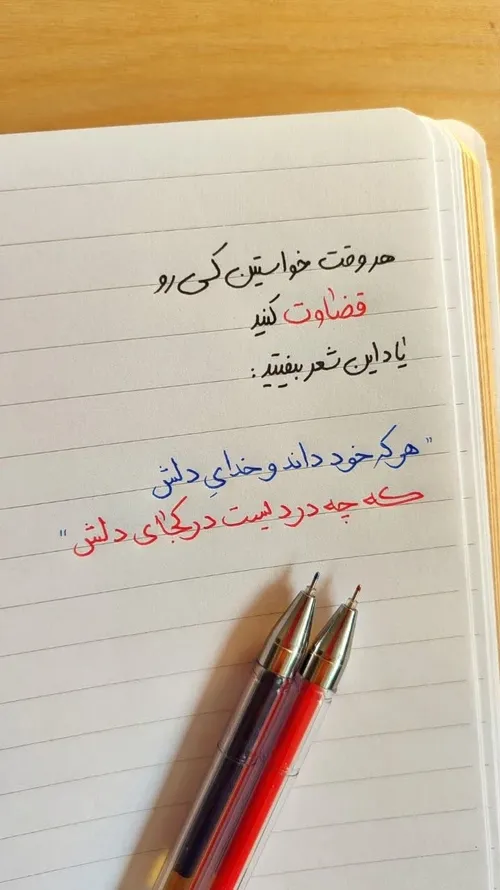 هر وقت خواستین کسی رو
قضاوت کنید
یاد این شعر بیفتید:
"هرکه خود داند و خدایِ دلش
که چه دردیست در کجای دلش"